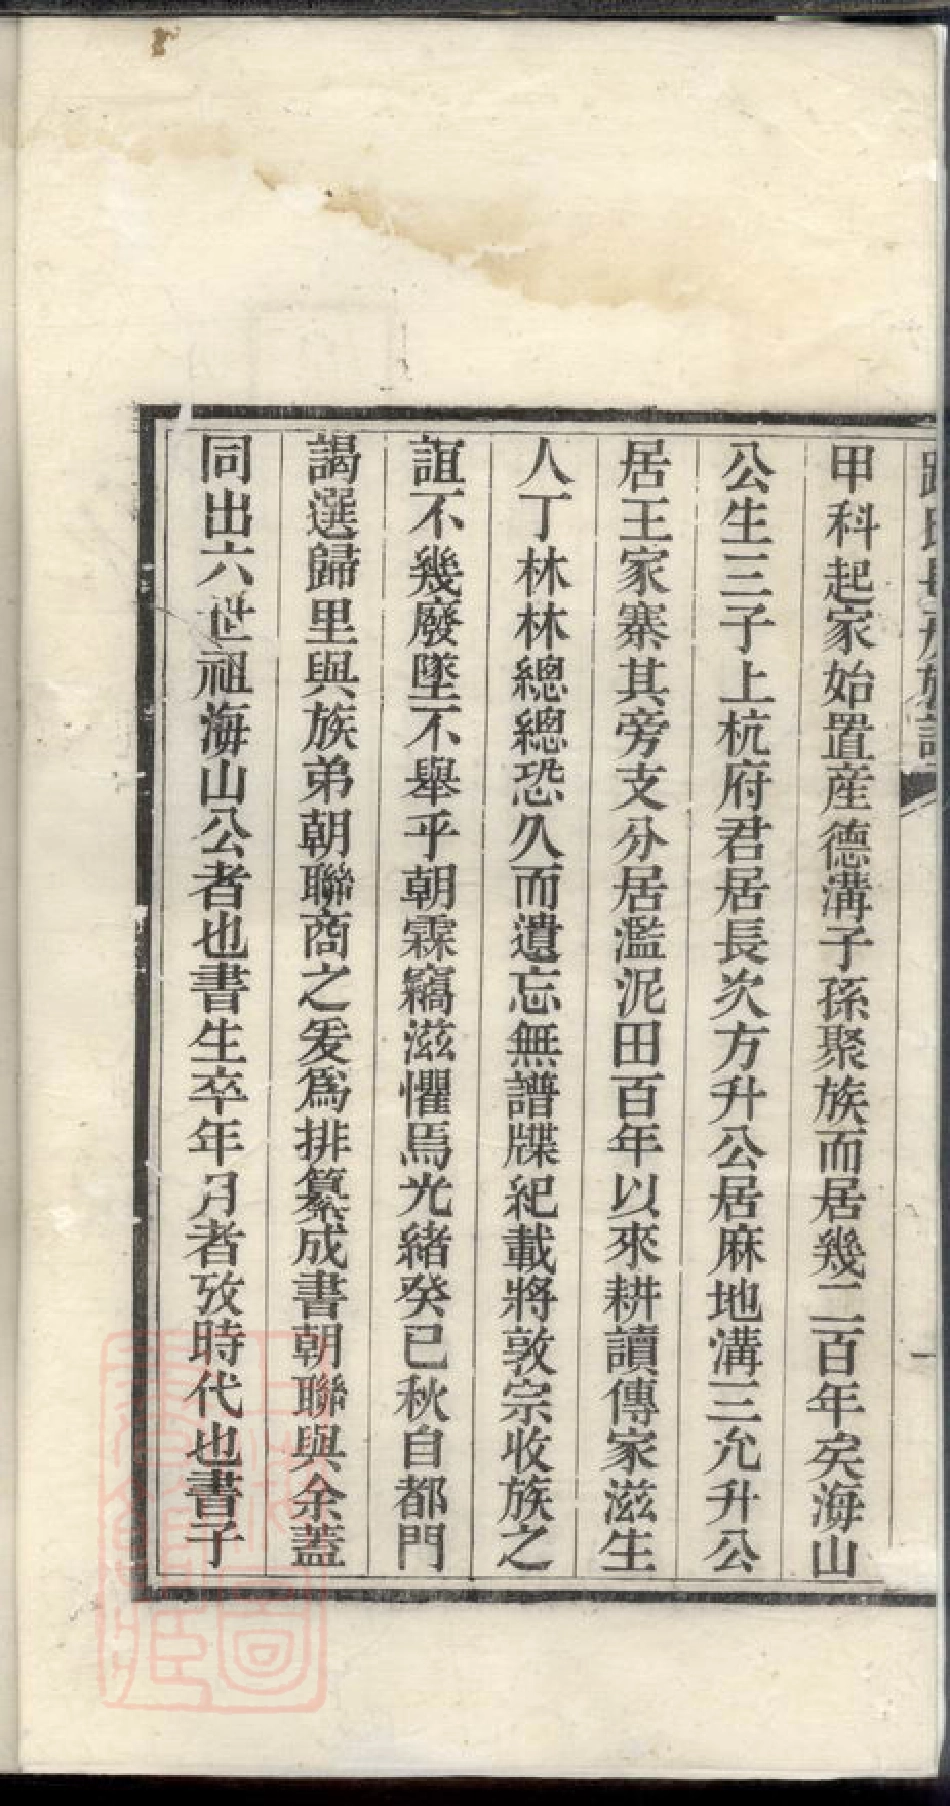 甲科起家始置産德溝子孫聚族而居幾二百年矣海山
公生三子上杭府君居長次方升公居麻地溝三允升公
居王家寨其旁支分居濫泥田百年以來耕讀傳家滋生
人丁林林總總恐久而遺忘無譜牒紀載將敦宗收族之
誼不幾廢墜不舉乎朝霖竊滋懼焉光緒癸巳秋自都門
謁選歸里與族弟朝聯商之爰爲排纂成書朝聯與余蓋
同出六世祖海山公者也書生卒年月者攷時代也書子